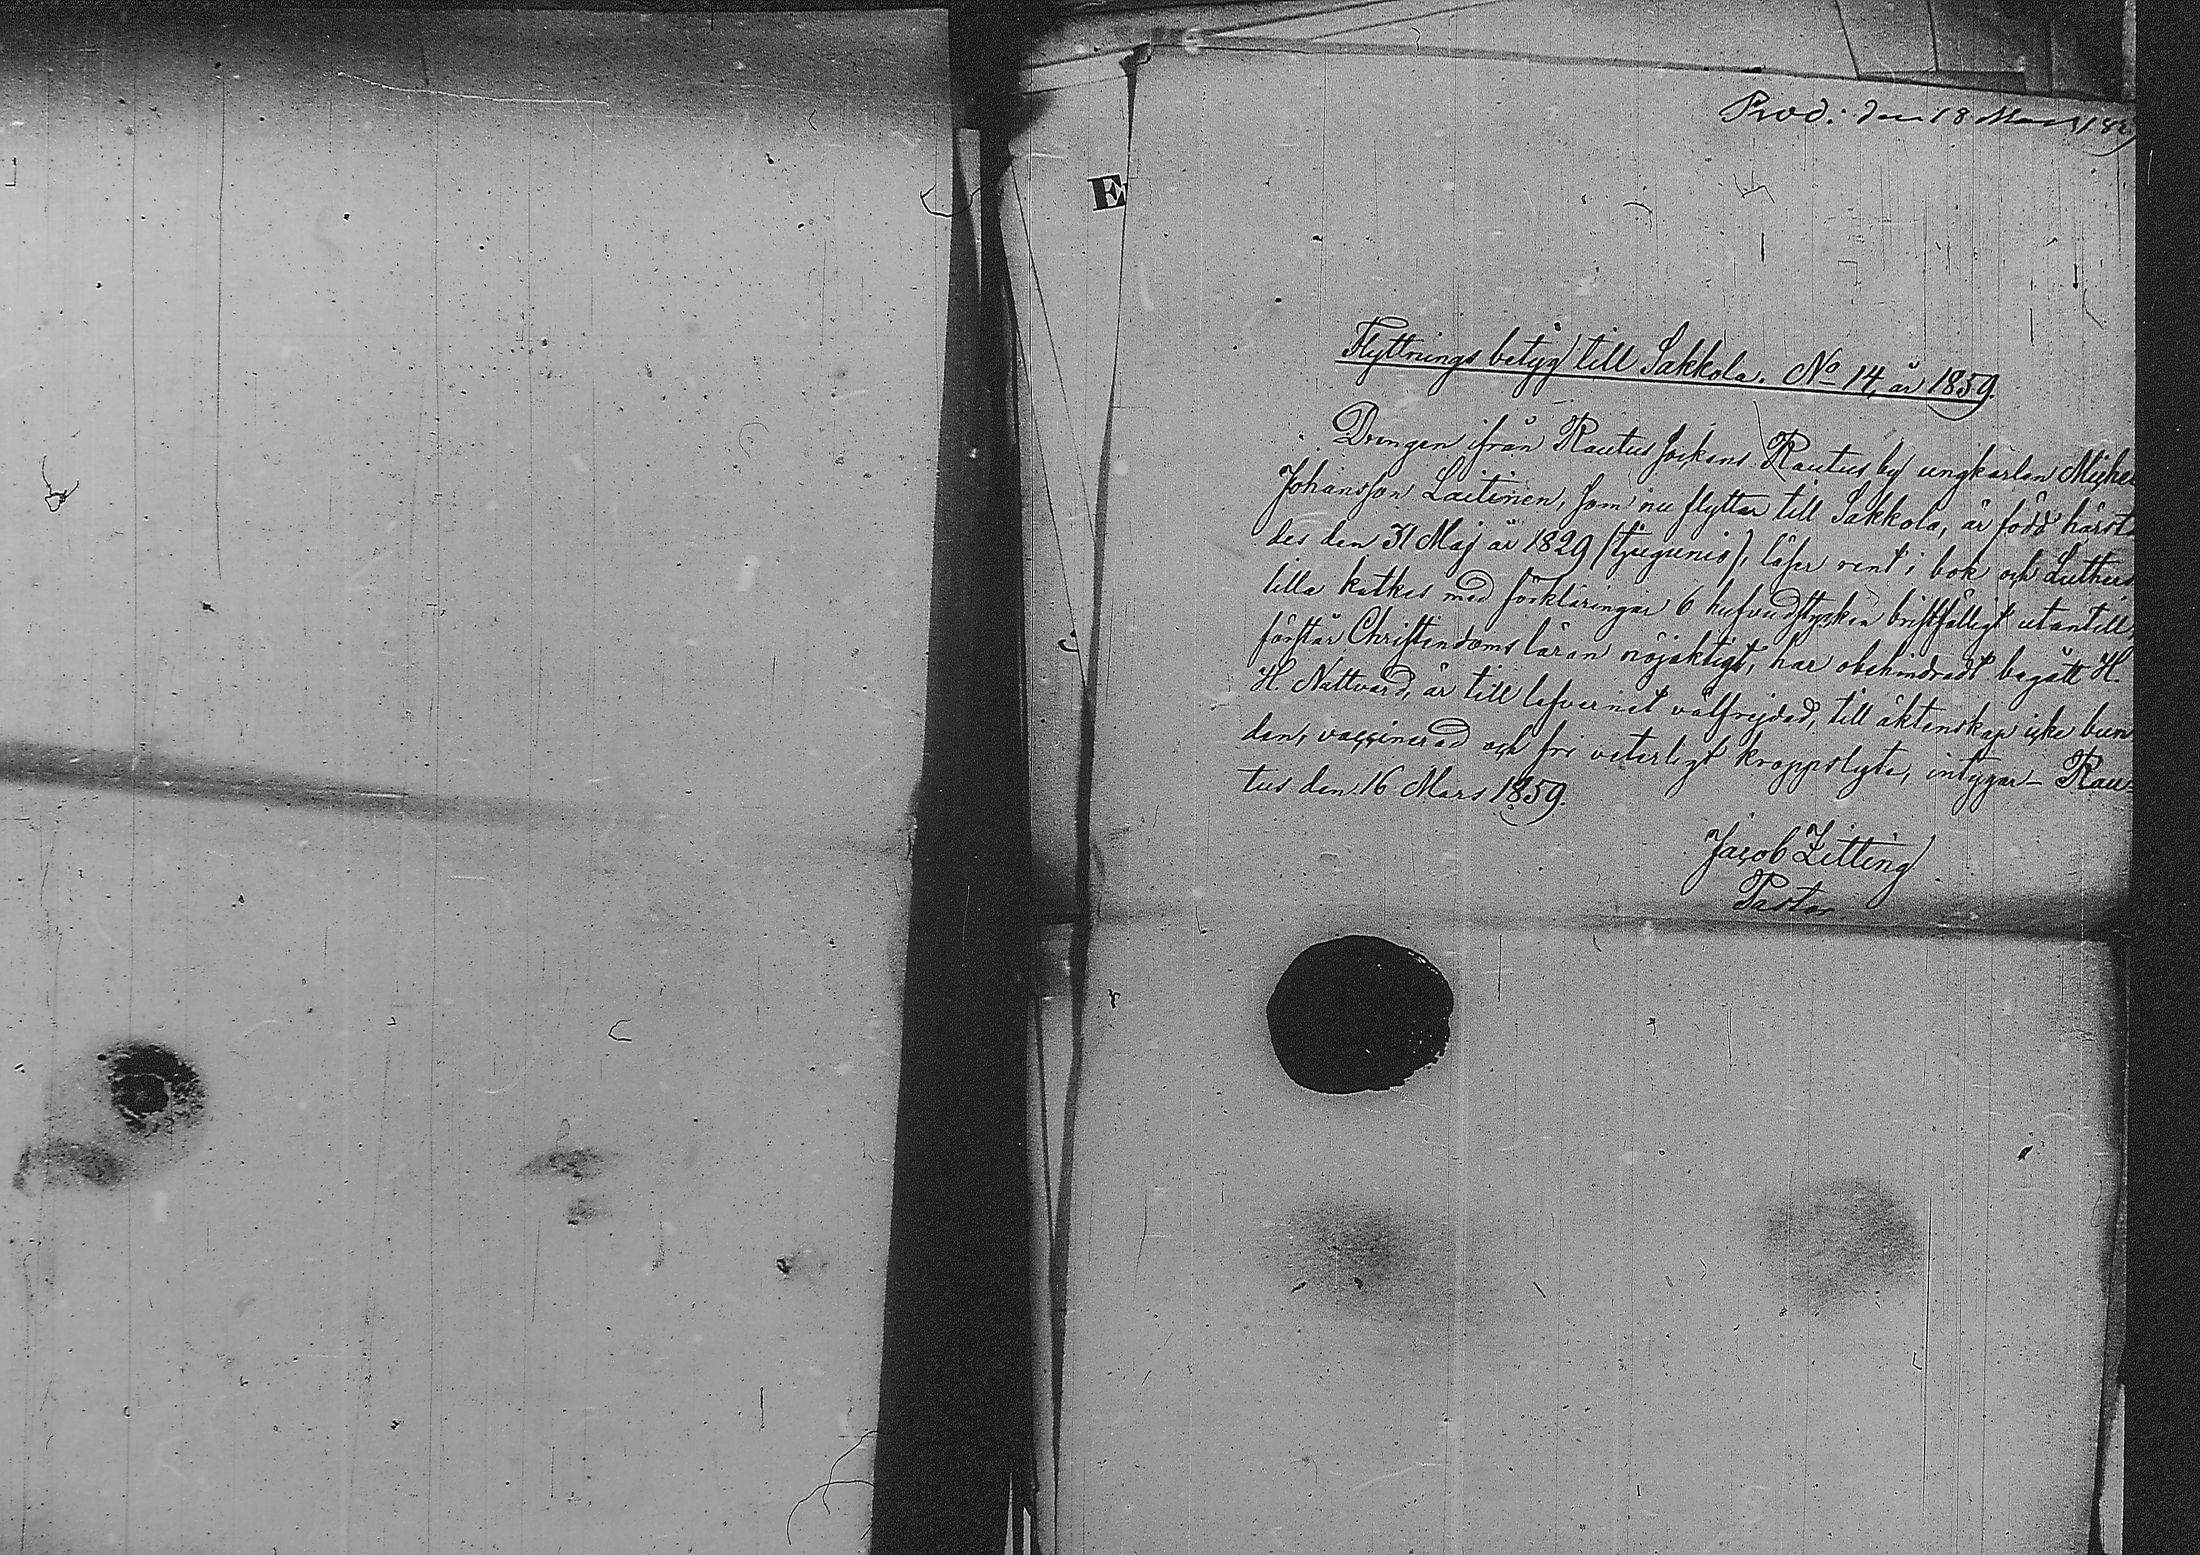 Prod. den 18 Mars 185
E
Flyttnings betyg till Sakkola. No 14, år 1859.
Drengen ifrån Rautus Sockens Rautus by ungkarlen Michel
Johansson Laitinen, som nu flyttar till Sakkola, är född härst
des den 31 Maj år 1829 (tjugunio), läser rent i bok och Luthers
lilla katkes med förklaringar 6 hufvudstycken bristfälligt utantill,
förstår Christendoms läran nöjaktigt, har obehindradt begått H.
H. Nattvard, är till lefvernet välfrejdad, till äktenskap icke bun
den, vaccinerad och fri veterligt kroppslyte, intygar – Rau-
tus den 16 Mars 1859.
Jacob Zitting
Pastor